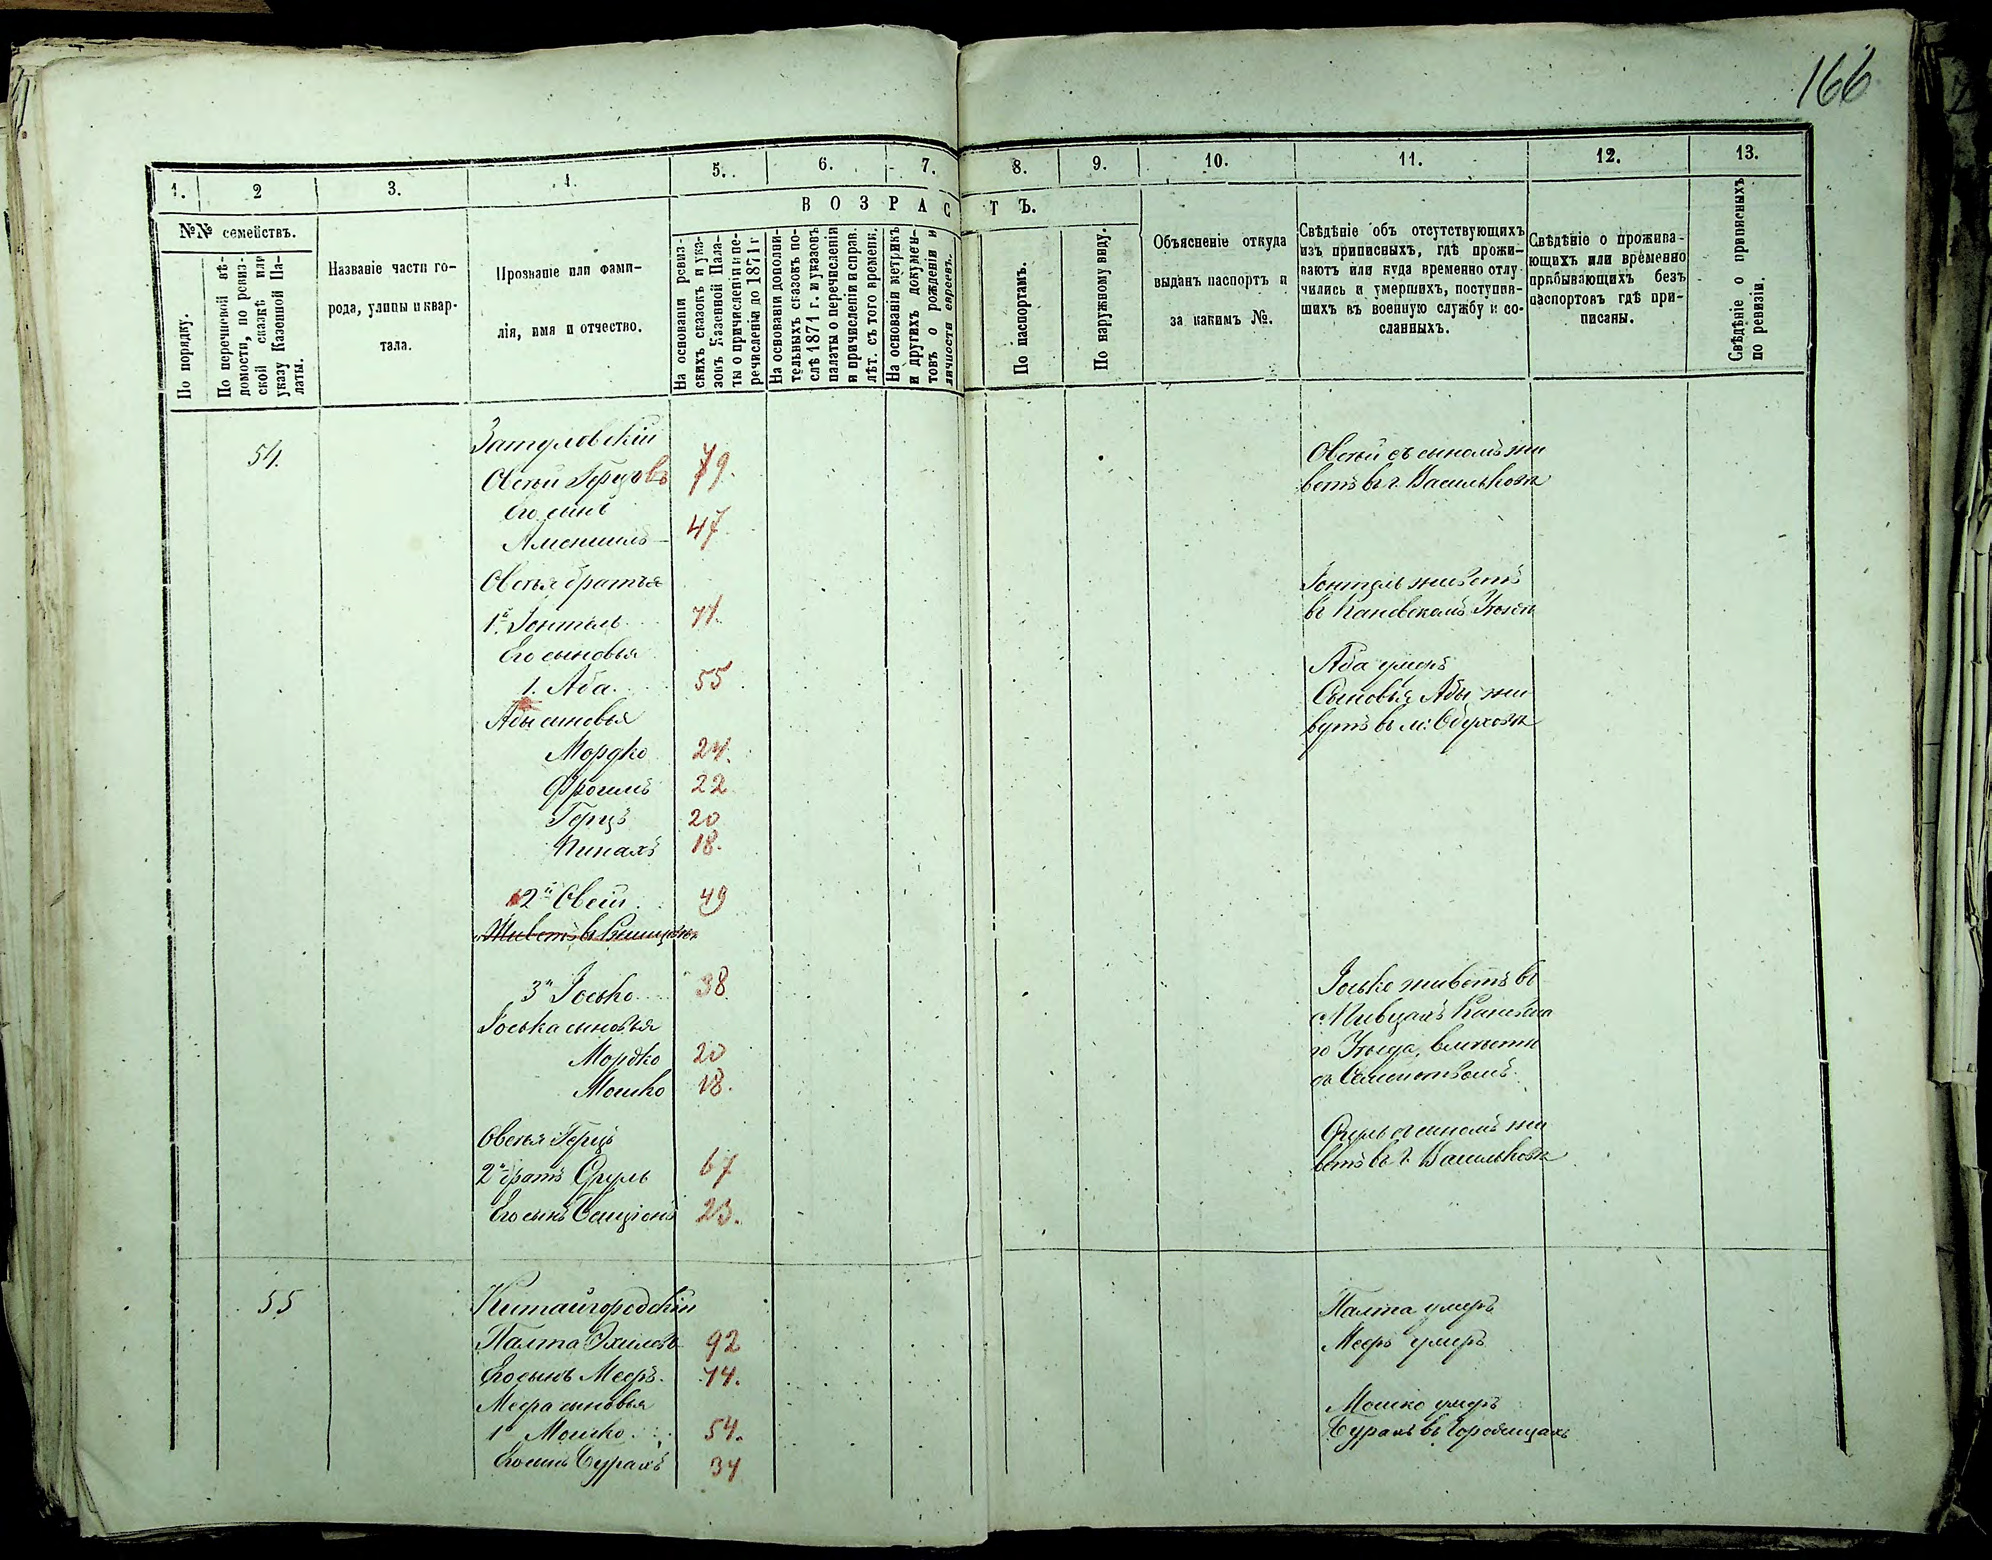 166
1. 2 3. 4. 5. 6. 7. 8. 9. 10. 11. 12. 13.
№№ семействъ.
По порядку.
По перечневой вѣ-
домости, по ревиз-
ской сказкѣ или
указу Казенной Па-
латы.
Названіе части го-
рода, улицы и квар-
тала.
Прозваніе или фами-
лія, имя и отчество.
ВОЗРАСТЪ.
На основаніи ревиз-
скихъ сказокъ и ука-
зовъ Казенной Пала-
ты о причисленіи и пе-
речисленіи до 1871 г
На основаніи дополни-
тельныхъ сказокъ по-
слѣ 1871 г. и указовъ
палаты о перечисленіи
и причисленіи и справ.
лѣт. съ того времени.
На основаніи метрикъ
и другихъ докумен-
товъ о рожденіи и
личности евреевъ.
По паспортамъ.
По наружному виду.
Объясненіе откуда
выданъ паспортъ и
за какимъ №.
Свѣдѣніе объ отсутствующихъ
изъ приписныхъ, гдѣ прожи-
ваютъ или куда временно отлу-
чились и умершихъ, поступив-
шихъ въ военную службу и со-
сланныхъ.
Свѣдѣніе о прожива-
ющихъ или временно
прибывающихъ безъ
паспортовъ гдѣ при-
писаны.
Свѣдѣніе о приписныхъ
по ревизіи.
54. Затуловскій
Овсѣй Герцовъ 79. Овсѣй съ сыномъ жи
ветъ въ г. Васильковѣ
Его синъ
47
Овсѣя братья
1й Зонтель 71. Зонтель живетъ
въ Каневскомъ Уѣздѣ
Его сыновья
1. Аба. 55 Аба умеръ
Абы синовья Сыновья Абы жи
вутъ въ м: Обуховѣ
Мордко 24.
Фроимъ 22
Герцъ 20
Пинахъ 18.
2й Овсій 49
Живетъ въ
3й Іосько 38 Іосько живетъ въ
с. Пивцахъ Каневска
Іоська сыновья
го Уѣзда, вмѣстѣ
Мордко 20
съ Семействомъ.
Мошко 18.
Овсѣя Герцъ
2й братъ Сруль 67 Сруль съ сыномъ жи
ветъ въ г. Васильковѣ
Его сынъ Бенціонъ 23.
55 Китайгородскій
Палта умеръ
Палта Эхилевъ 92
Мееръ умеръ
Его сынъ Мееръ. 74.
Меера сыновья
1й Мошко 54. Мошко умеръ
Бурахъ въ Городищахъ
Его синъ Бурахъ 34